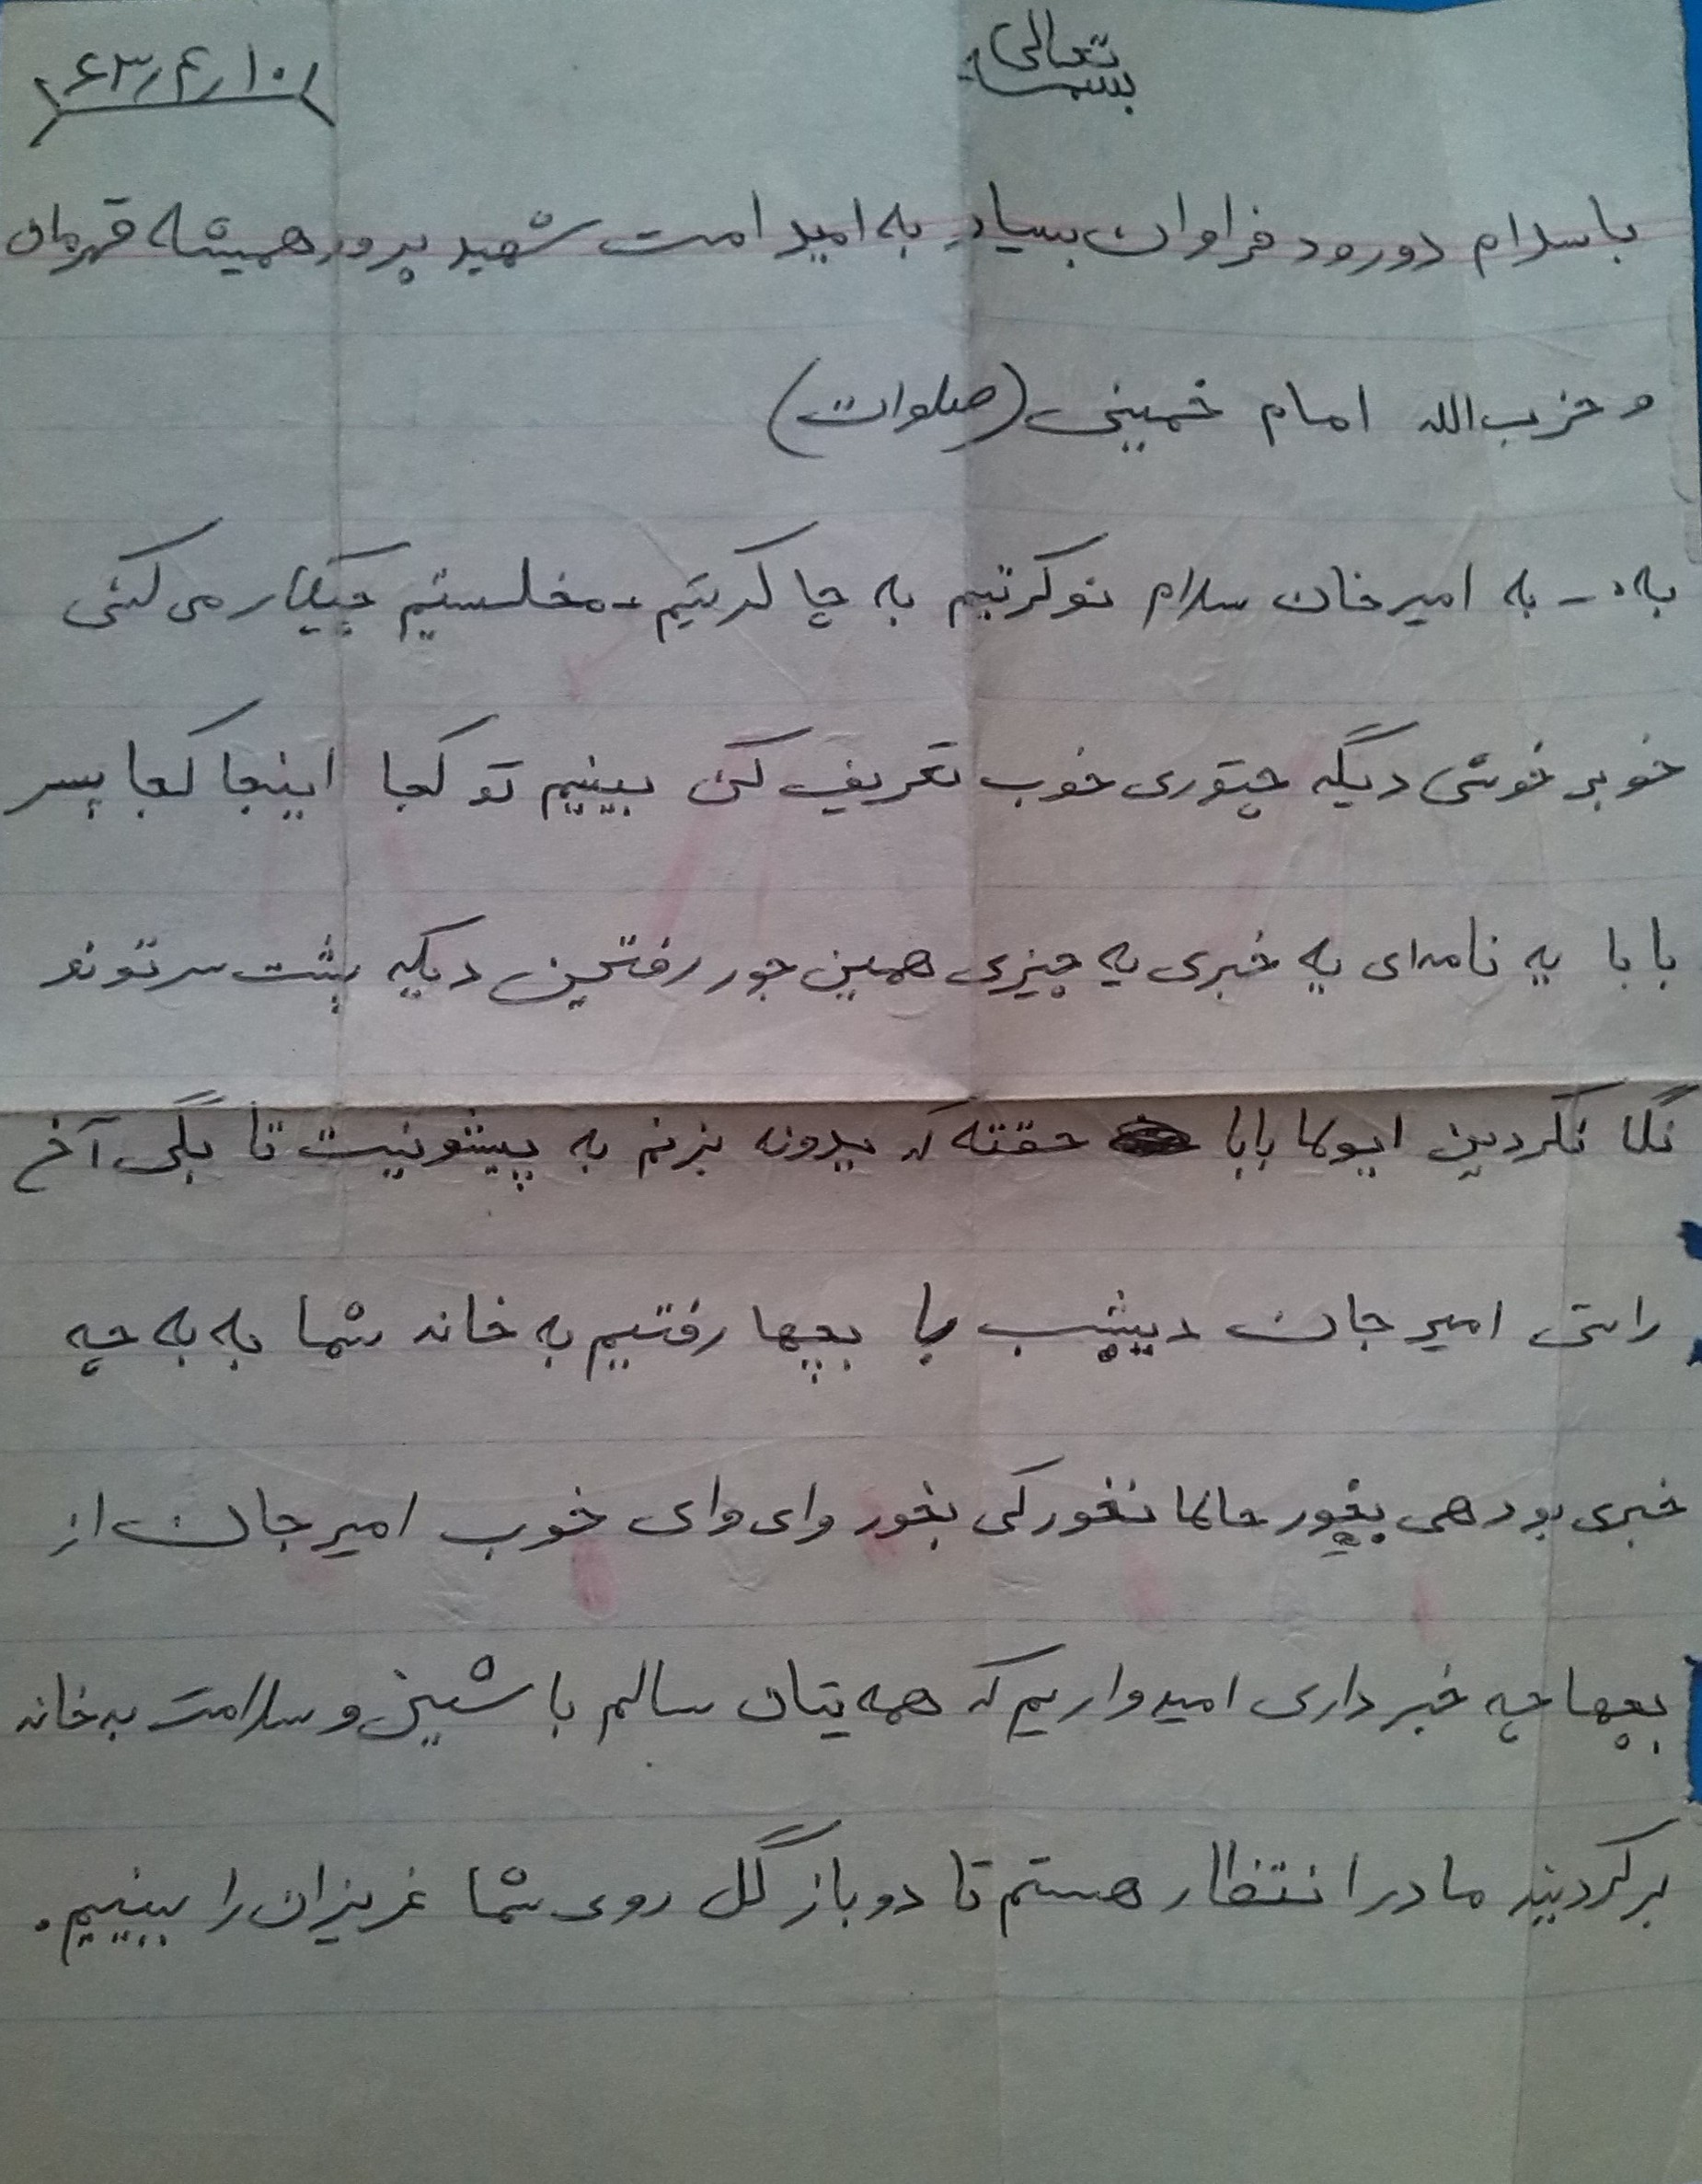 بسمه تعالی
۶۳/۴/۱۰
با سلام دورود فراوان بسیار به امید امت شهید پرور همیشه قهرمان
و حزب الله امام خمینی (صلوات)
به - به امیر خان سلام نوکرتیم به چا کرتیم - مخلستیم چیکار می کنی
خوبی خوشی دیگه چتوری خوب تعریف کن ببینیم تو کجا اینجا کجا پسر
بابا یه نامه‌ای یه خبری یه چیزی همین جور رفتین دیگه پشت سرتونو
نگا نکردین ایولا بابا حقته که یدونه بزنم به پیشونیت تا بگی آخ
راستی امیر جان دیشب با بچها رفتیم به خانه شما به به چه
خبری بود هی بخور حالا نخور کی بخور وای وای خوب امیر جان از
بچها چه خبر داری امیدواریم که همه یتان سالم باشین و سلامت به خانه
برگردیند ما در انتظار هستم تا دوباز گل روی شما عزیزان را ببینیم.